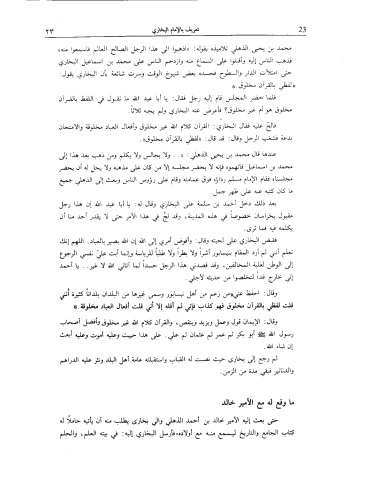 ٢٣ تعريف بالإمام البخاري 23
محمد بن يحيى الذهلي تلاميذه بقوله: «اذهبوا الى هذا الرجل الصالح العالم فاسمعوا منه»
فذهب الناس إليه وأقبلوا على السماع منه وازدحم الناس على محمد بن اسماعيل البخاري
حتى امتلات الدار والسطوح فحسده بعض شيوخ الوقت وسرت شائعة بأن البخاري يقول:
«لفظي بالقرآن مخلوق».
فلما حضر المجلس قام إليه رجل فقال: يا أبا عبد الله ما تقول في اللفظ بالقرآن
مخلوق هو ام غير مخلوق؟ فأعرض عنه البخاري ولم يجبه ثلاثاً.
فالح عليه فقال البخاري: القرآن كلام الله غير مخلوق وأفعال العباد مخلوقة والامتحان
بدعة فشغب الرجل وقال: قد قال: «لفظي بالقرآن مخلوق».
عندها قال محمد بن يحيى الذهلي: «... ولا يجالس ولا يكلم ومن ذهب بعد هذا إلى
محمد بن اسماعيل فاتهموه فإنه لا يحضر مجلسه إلا من كان على مذهبه ولا يحل له أن يحضر
مجلسنا» فقام الإمام مسلم رداؤه فوق عمامته وقام على رؤوس الناس وبعث إلى الذهلي جميع
ما كان كتبه عنه على ظهر جمل.
بعد ذلك دخل أحمد بن سلمة على البخاري وقال له: يا أبا عبد الله إن هذا رجل
مقبول بخراسان خصوصاً في هذه المدينة، وقد لج في هذا الأمر حتى لا يقدر أحد منا أن
يكلمه فيه فما ترى.
فقبض البخاري على لحيته وقال: وأفوض أمري إلى الله إن الله بصير بالعباد. اللهم إنك
تعلم أنني لم أرد المقام بنيسابور أشراً ولا بطراً ولا طلباً للرياسة وإنما أبت علي نفسي الرجوع
إلى الوطن لغلبة المخالفين، وقد قصدني هذا الرجل حسداً لما آتاني الله لا غير. يا أحمد
إني خارج غداً لتخلصوا من حديثه لأجلي.
وقال: احفظ عني«من زعم من أهل نيسابور وسمى غيرها من البلدان بلداناً كثيرة أنني
قلت لفظي بالقرآن مخلوق فهو كذاب فإني لم أقله إلا أني قلت أفعال العباد مخلوقة».
وقال: الإيمان قول وعمل ويزيد وينقص، والقرآن كلام الله غير مخلوق وأفضل أصحاب
رسول الله ﷺ أبو بكر ثم عمر ثم عثمان ثم علي. على هذا حييت وعليه أموت وعليه أبعث
إن شاء الله.
ثم رجع إلى بخارى حيث نصبت له القباب واستقبلته عامة أهل البلد ونثر عليه الدراهم
والدنانير فبقي مدة من الزمن.
ما وقع له مع الأمير خالد
حتى بعث إليه الأمير خالد بن أحمد الذهلي والي بخارى يطلب منه أن يأتيه حاملاً له
كتاب الجامع والتاريخ ليسمع منه مع أولاده«فأرسل البخاري إليه: في بيته العلم، والحلم